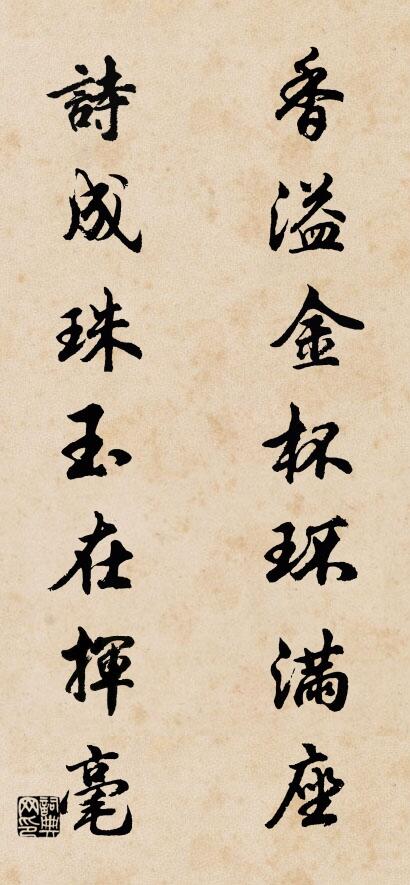 香溢金杯环满座
詩成珠玉在揮毫
詞典网印